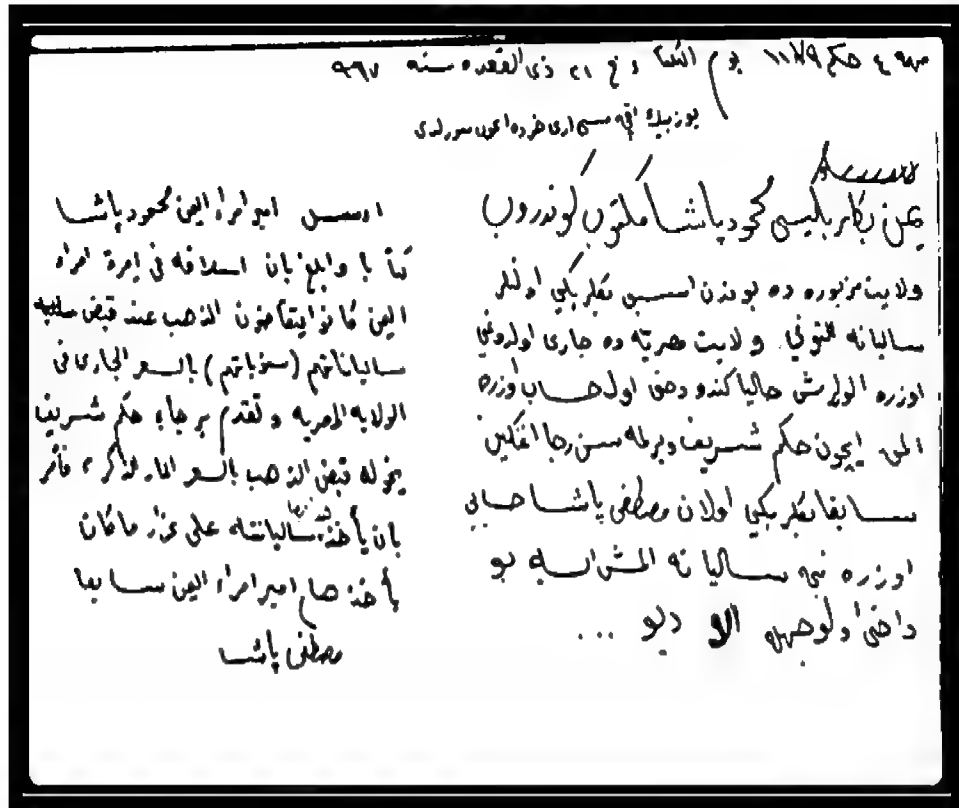 مهمه ٤ حكم ١١٧٩ يوم الثلثا و في ٢١ ذي القعده سنه ٩٦٧
يوز بيك اقچه
يمن بكلربكيسى محمود پاشا مكتوب كوندروب
ولايت مزبوره ده بوندن اسبق بكلربكي اولنلر
ساليانه لتونى ولايت مصريه ده جارى اولدوغى
اوزره الورلرمش حاليا كندو دخى اول حساب اوزره
المق ايچون حكم شريف ويرلمه سن رجا اتمكين
سابقا بكلربكي اولان مصطفى پاشا حسابى
اوزره نيجه ساليانه المش ايسه بو
داخى اولوجهله الا ديو ...
ارسل امير امراء اليمن محمود پاشا
كتابا وابلغ بان اسلافه فى امرة امراء
اليمن كانوا يتقاضون الذهب عند قبض
ساليانا تهم (سنوياتهم) بالسعر الجارى فى
الولايه المصريه وتقدم برجاء حكم شريف
يخوله قبض الذهب بالسعر المار الذكر ، فأمر
بان يأخذ ساليانته على غرار ماكان
يأخذ امير امراء اليمن سابقا
مصطفى پاشا